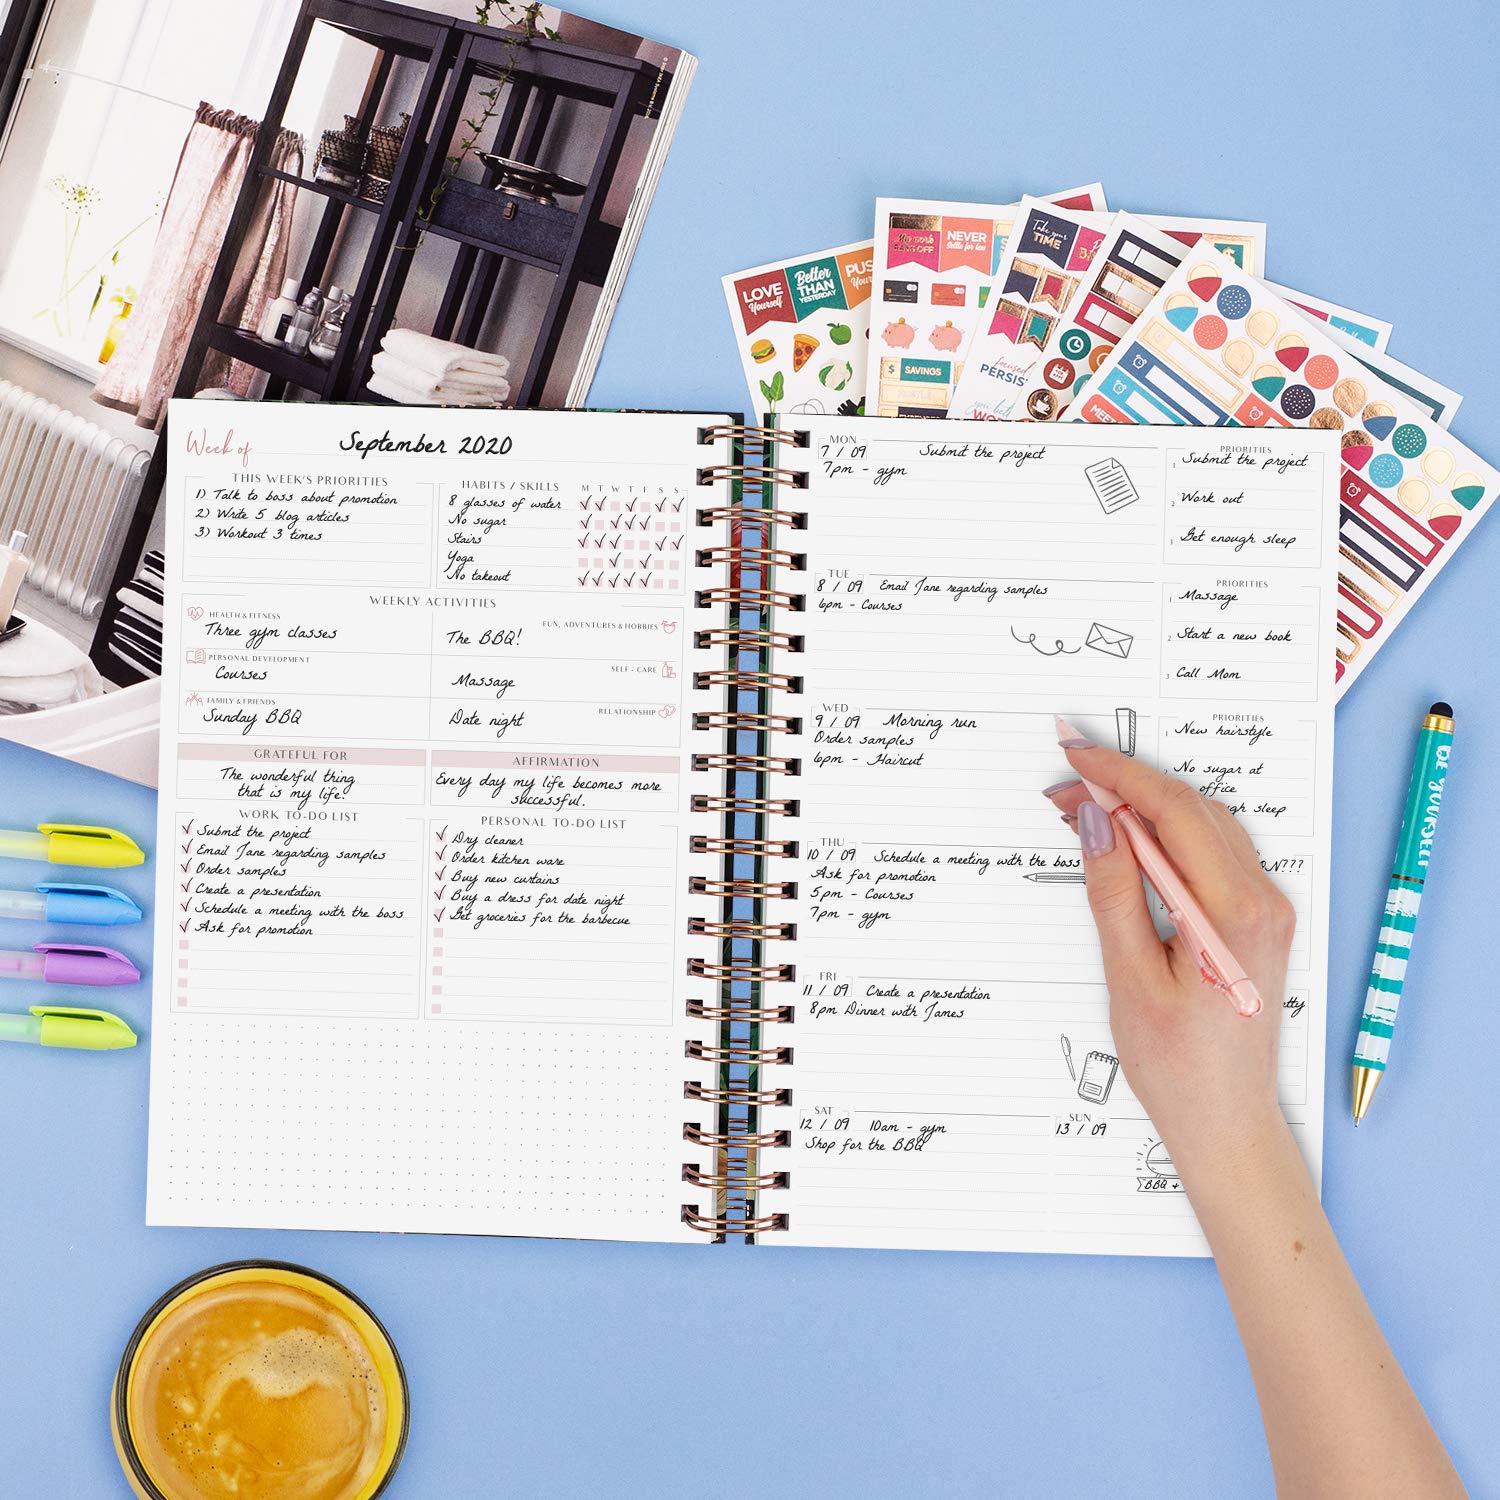 LOVE
Yourself
Better
THAN
YESTERDAY
NEVER
Settle for less
Take your
TIME
$ SAVINGS
focused
Week of
September 2020
THIS WEEK'S PRIORITIES
1) Talk to boss about promotion
2) Write 5 blog articles
3) Workout 3 times
HABITS / SKILLS
M T W T F S S
8 glasses of water
No sugar
Stairs
Yoga
No takeout
WEEKLY ACTIVITIES
HEALTH & FITNESS
Three gym classes
FUN, ADVENTURES & HOBBIES
The BBQ!
PERSONAL DEVELOPMENT
Courses
SELF - CARE
Massage
FAMILY & FRIENDS
Sunday BBQ
RELATIONSHIP
Date night
GRATEFUL FOR
The wonderful thing
that is my life!
AFFIRMATION
Every day my life becomes more
successful.
WORK TO-DO LIST
Submit the project
Email Jane regarding samples
Order samples
Create a presentation
Schedule a meeting with the boss
Ask for promotion
PERSONAL TO-DO LIST
Dry cleaner
Order kitchen ware
Buy new curtains
Buy a dress for date night
Get groceries for the barbecue
MON
7 / 09 Submit the project
7pm - gym
PRIORITIES
1. Submit the project
2. Work out
3. Get enough sleep
TUE
8 / 09 Email Jane regarding samples
6pm - Courses
PRIORITIES
1. Massage
2. Start a new book
3. Call Mom
WED
9 / 09 Morning run
Order samples
6pm - Haircut
PRIORITIES
1. New hairstyle
2. No sugar at
office
sleep
THU
10 / 09 Schedule a meeting with the boss
Ask for promotion
5pm - Courses
7pm - gym
FRI
11 / 09 Create a presentation
8pm Dinner with James
SAT
12 / 09 10am - gym
Shop for the BBQ
SUN
13 / 09
BBQ +
Be yourself